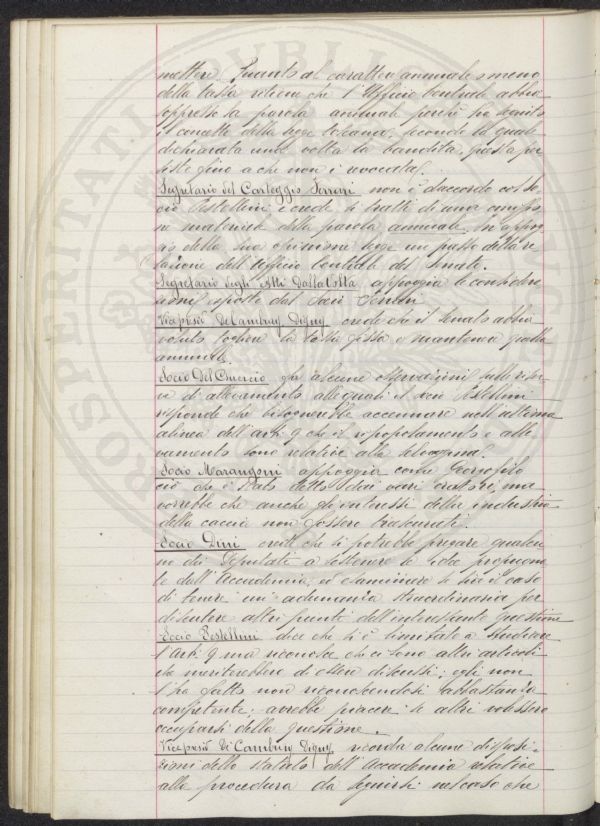 mettere. Quanto al carattere annuale o meno
della tassa ritiene che l'Ufficio Centrale abbia
soppressa la parola annuale perché ha seguito
il concetto della legge toscana, secondo la quale
dichiarata una volta la bandita, questa per
siste fino a che non è revocata.
Segretario del Carteggio Serrini non è d'accordo col so
cio Pestellini e crede si tratti di una
materiale della parola annuale. In appog
gio della sua opinione legge un passo della re
lazione dell'Ufficio Centrale del Senato.
Segretario degli Atti Dalla Volta appoggia le considera
zioni esposte dal Socio Serrini
Vicepresid. De Cambray Digny crede che il Senato abbia
voluto togliere la tassa fissa e mantenere quella
annuale.
Socio Del Guercio fa alcune osservazioni sulle riser
ve di allevamento alle quali il socio Pestellini
risponde che bisognerebbe accennare nell'ultima
alinea dell'art. 9 che il ripopolamento e alle
vamento sono relative alla selvaggina.
Socio Marangoni appoggia come Georgofilo
ciò che è stato detto dai vari oratori, ma
vorrebbe che anche gli interessi della industria
della caccia non fossero trascurati.
Socio Dini crede che si potrebbe pregare qualcu
no dei Deputati a sostenere le idee propugna
te dall'Accademia, ed esaminare se sia il caso
di tenere un'adunanza straordinaria per
discutere altri punti dell'interessante questione
Socio Pestellini dice che si è limitato a studiare
l'art. 9 ma riconosce che ci sono altri articoli
che meriterebbero di essere discussi; egli non
l'ha fatto non riconoscendosi abbastanza
competente; avrebbe piacere se altri volessero
occuparsi della questione.
Vicepresid. De Cambray Digny ricorda alcune disposi-
zioni dello Statuto dell'Accademia relative
alla procedura da seguirsi nel caso che